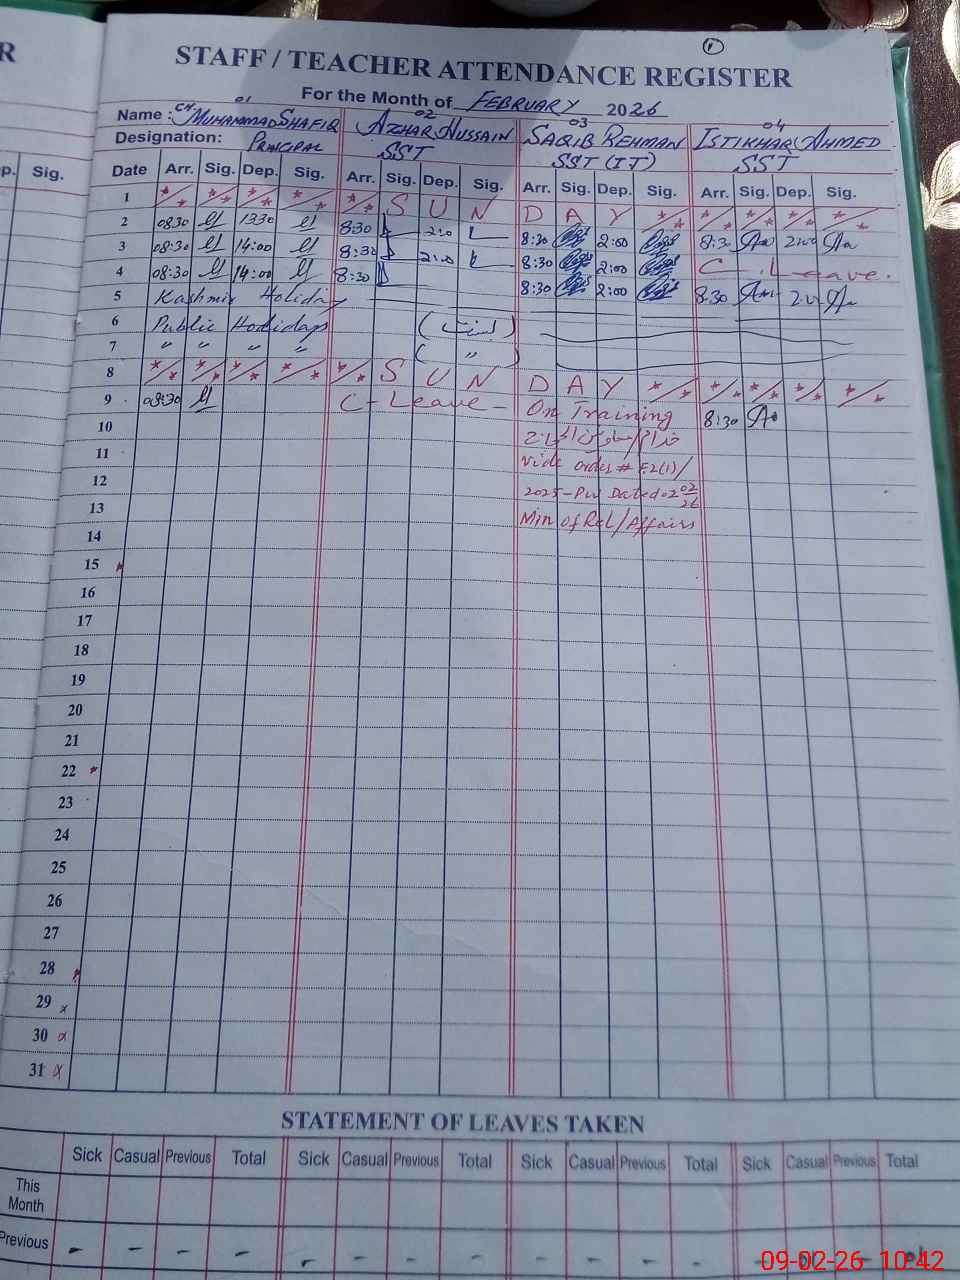 R
1
STAFF / TEACHER ATTENDANCE REGISTER
For the Month of FEBRUARY 2026
Name : CH MUHAMMAD SHAFIQ 01 AZHAR HUSSAIN 02 SAQIB REHMAN 03 ISTIKHAR AHMED 04
Designation: PRINCIPAL SST SST (IT) SST
p. Sig. Date Arr. Sig. Dep. Sig. Arr. Sig. Dep. Sig. Arr. Sig. Dep. Sig. Arr. Sig. Dep. Sig.
1 S U N D A Y
2 0830 1330 8:30 2:0 8:30 2:00 8:30 2:00
3 08:30 14:00 8:30 2:0 8:30 2:00 C. Leave.
4 08:30 14:00 8:30 8:30 2:00 8:30
5 Kashmir Holiday
6 Public Holidays
7 " " " " ( " )
8 S U N D A Y
9 08:30 C - Leave - On Training 8:30
10
11 Vide order # F.2(1)/
12 2025-PW Dated 02 02/26
13 Min of Rel/Affairs
14
15
16
17
18
19
20
21
22
23
24
25
26
27
28
29 x
30 x
31 x
STATEMENT OF LEAVES TAKEN
Sick Casual Previous Total Sick Casual Previous Total Sick Casual Previous Total Sick Casual Previous Total
This Month
Previous - - - - - - - - - - - -
09-02-26 10:42